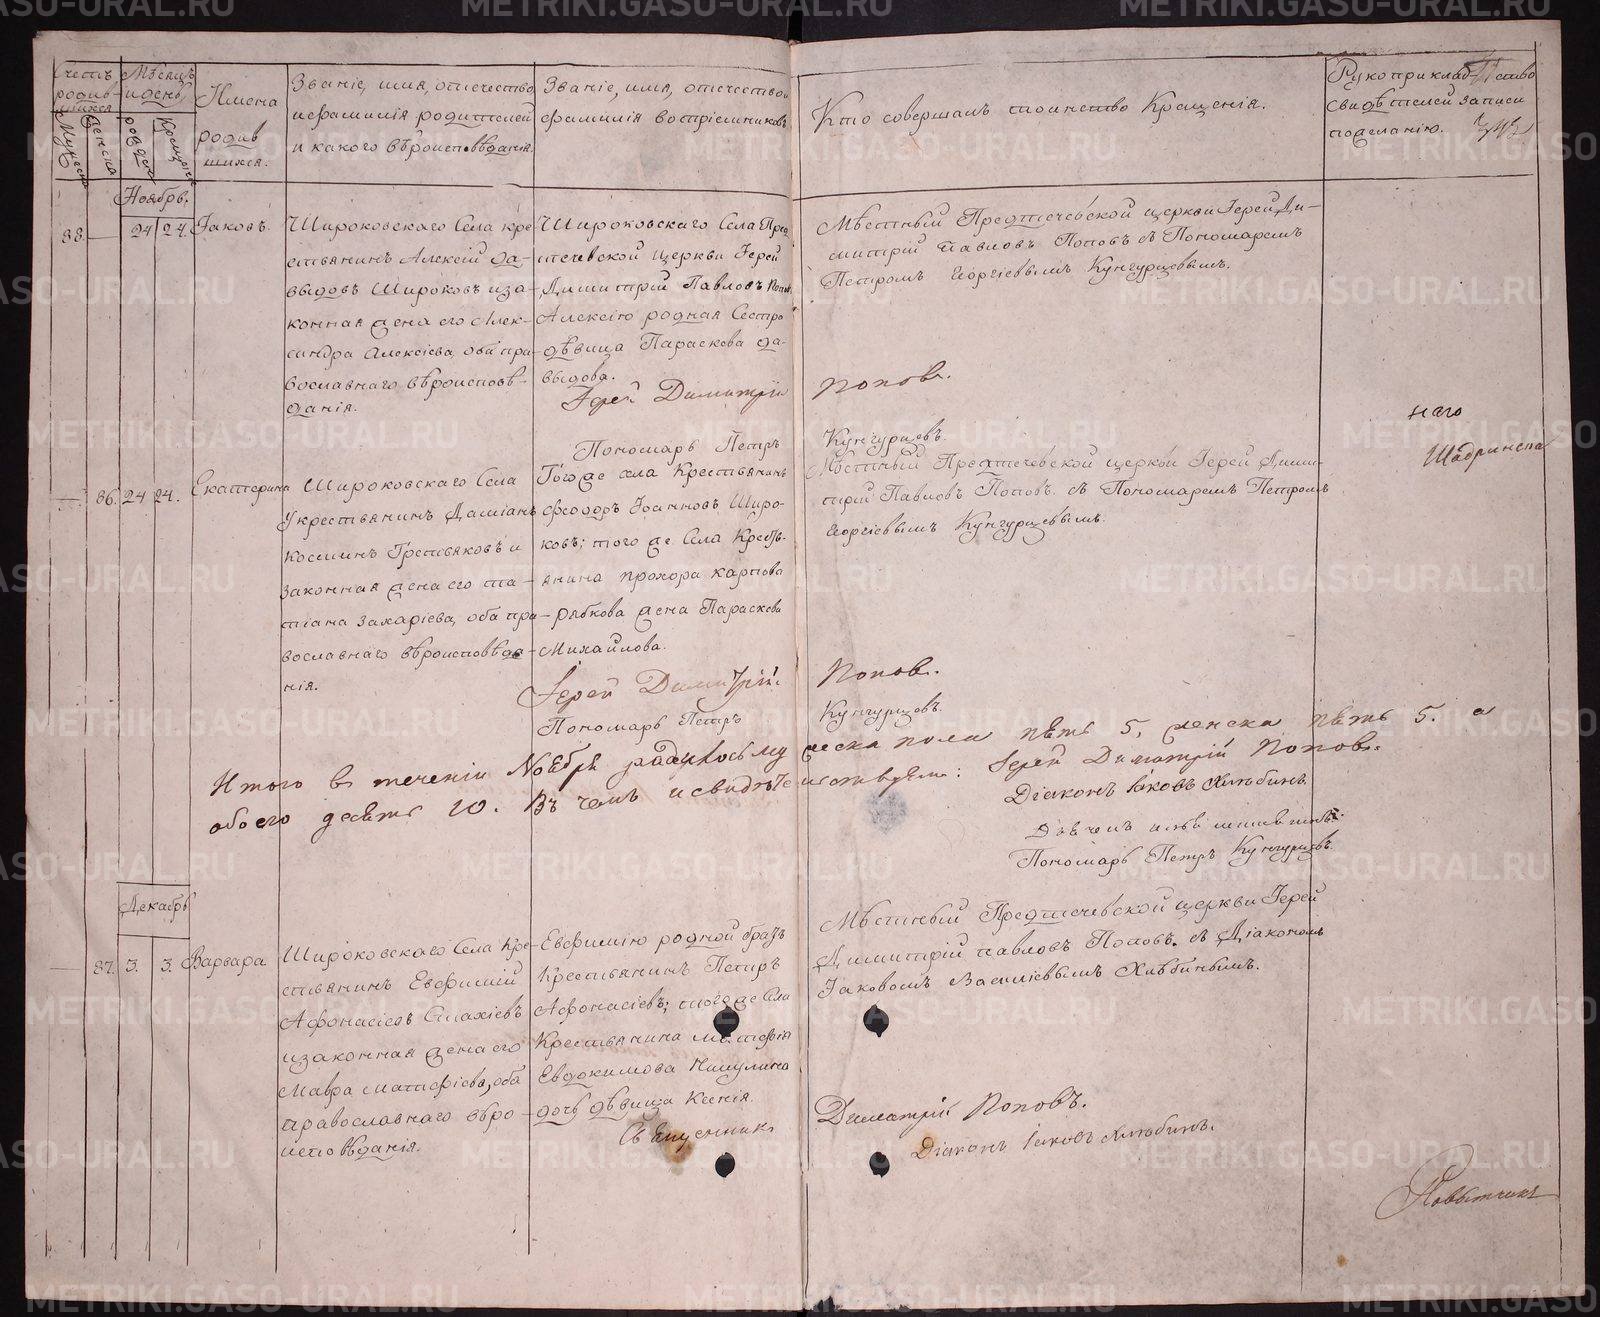 Счетъ родившихся
Мужеска
Женска
Мѣсяцъ и день
рожденія
Крещенія
Имена родившихся.
Званіе, имя, отечество
и фамилія родителей
и какого вѣроисповѣданія.
Званіе, имя, отечество и
фамилія воспріемниковъ
Кто совершалъ таинство Крещенія.
Рукоприкладство
свидѣтелей записи
по желанію.
Ноябрь.
88. 24 24. Іаковъ.
Широковскаго Села кре-
стьянинъ Алексій Да-
выдовъ Широковъ и за-
конная жена его Алек-
сандра Алексіева, оба пра-
вославнаго вѣроисповѣ-
данія.
Широковскаго Села Пред-
течевской Церкви Іерей
Димитрій Павловъ Попов.
Алексію родная Сестра
дѣвица Параскева Да-
выдова.
Іерей Димитрій Попов.
Пономарь Петръ Кунгурцевъ.
Мѣстный Предтечевской церкви Іерей Ди-
митрій Павловъ Поповъ съ Пономаремъ
Петромъ Георгіевымъ Кунгурцевымъ.
наго
Шадринска
86. 24 24. Екатерина
Широковскаго Села
крестьянинъ Даміанъ
Косминъ Третьяковъ и
законная жена его Та-
тіана Захаріева, оба пра-
вославнаго вѣроисповѣда-
нія.
Того же села Крестьянинъ
Феодоръ Іоанновъ Широ-
ковъ; того же Села Кресть-
янина Прохора Карпова
Рябкова жена Параскева
Михайлова.
Іерей Димитрій Попов.
Пономарь Петръ Кунгурцевъ.
Мѣстный Предтечевской церкви Іерей Дими-
трій Павловъ Поповъ съ Пономаремъ Петромъ
Георгіевымъ Кунгурцевымъ.
Итого въ теченіи Ноября родилось мужеска пола пять 5, женска пять 5. а
обоего десять 10. Въ чемъ и свидѣтельствуемъ: Іерей Димитрій Попов.
Діаконъ Іаковъ Хлѣбинъ.
Пономарь Петръ Кунгурцевъ.
Декабрь
87. 3. 3. Варвара
Широковскаго Села Кре-
стьянинъ Евфимій
Афонасіевъ Малхіевъ
и законная жена его
Мавра Матфіева, оба
православнаго вѣро-
исповѣданія.
Евфимію родной братъ
Крестьянинъ Петръ
Афонасіевъ; того же Села
Крестьянина Матфія
Евдокимова Пичулина
дочь дѣвица Ксенія.
Священникъ Димитрій Поповъ.
Діаконъ Іаковъ Хлѣбинъ.
Мѣстный Предтечевской церкви Іерей
Димитрій Павловъ Поповъ съ Діакономъ
Іаковомъ Василіевымъ Хлѣбинымъ.
Повытчикъ
METRIKI.GASO-URAL.RU